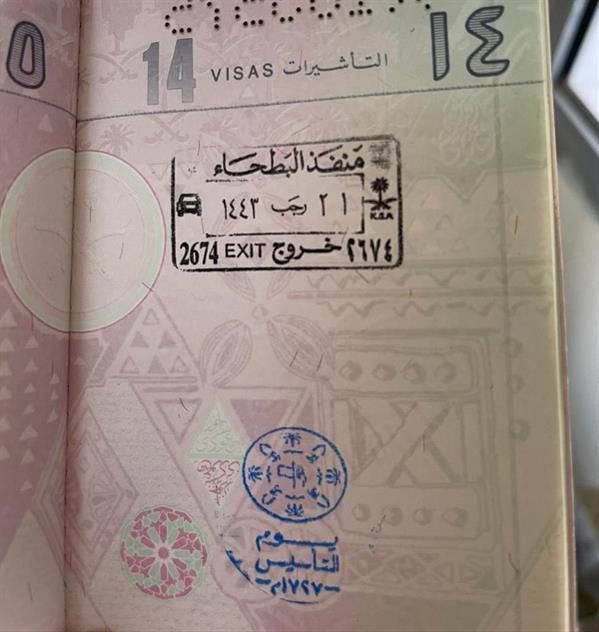 14 VISAS التأشيرات ١٤
منفذ البطحاء
٢١ رجب ١٤٤٣
KSA
2674 EXIT خروج ٢٦٧٤
يوم
التأسيس
١٧٢٧م